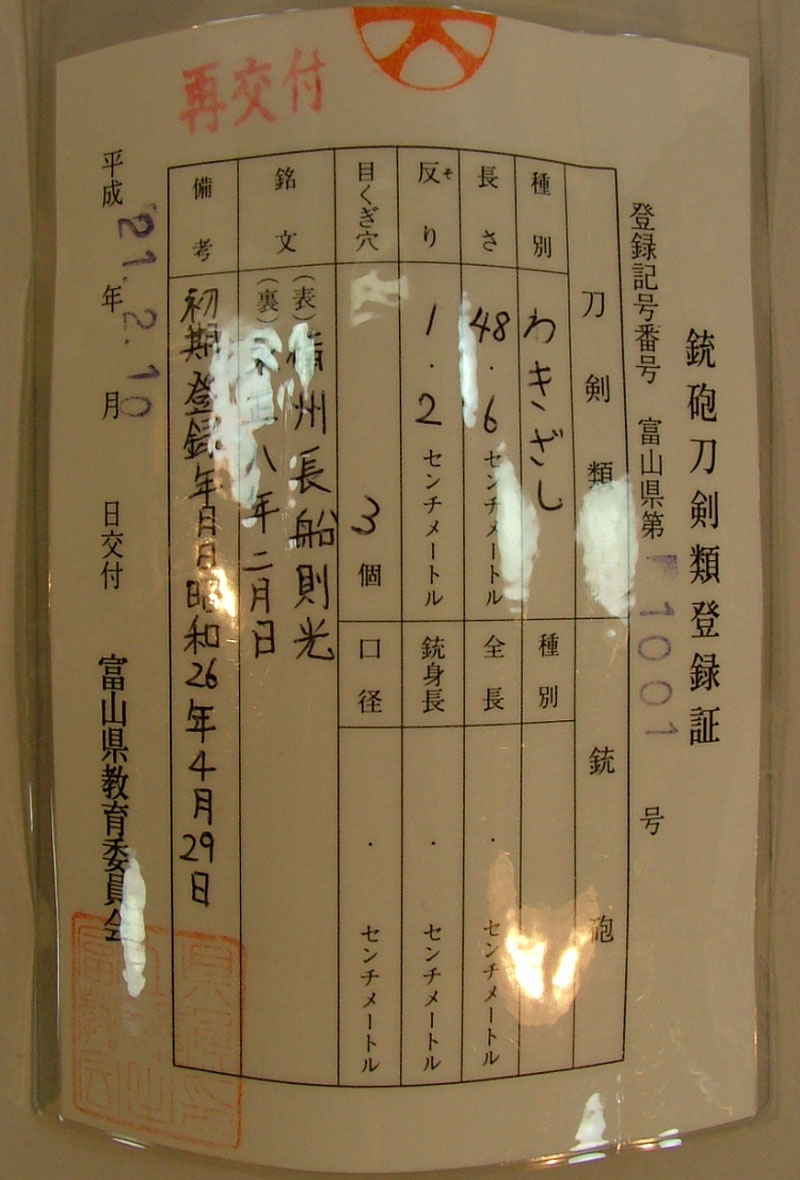 銃砲刀剣類登録証
登録記号番号 富山県第 11001 号
刀剣類
種別 わきざし
長さ 48.6 センチメートル
反り そ 1.2 センチメートル
目くぎ穴 3個
銘文 (表) 備州長船則光
(裏) 八年二月日
備考 初期登録年月日昭和26年4月29日
銃砲
種別
全長 ・ センチメートル
銃身長 ・ センチメートル
口径 ・ センチメートル
平成 21.2.10 年 月 日交付 富山県教育委員会
再交付